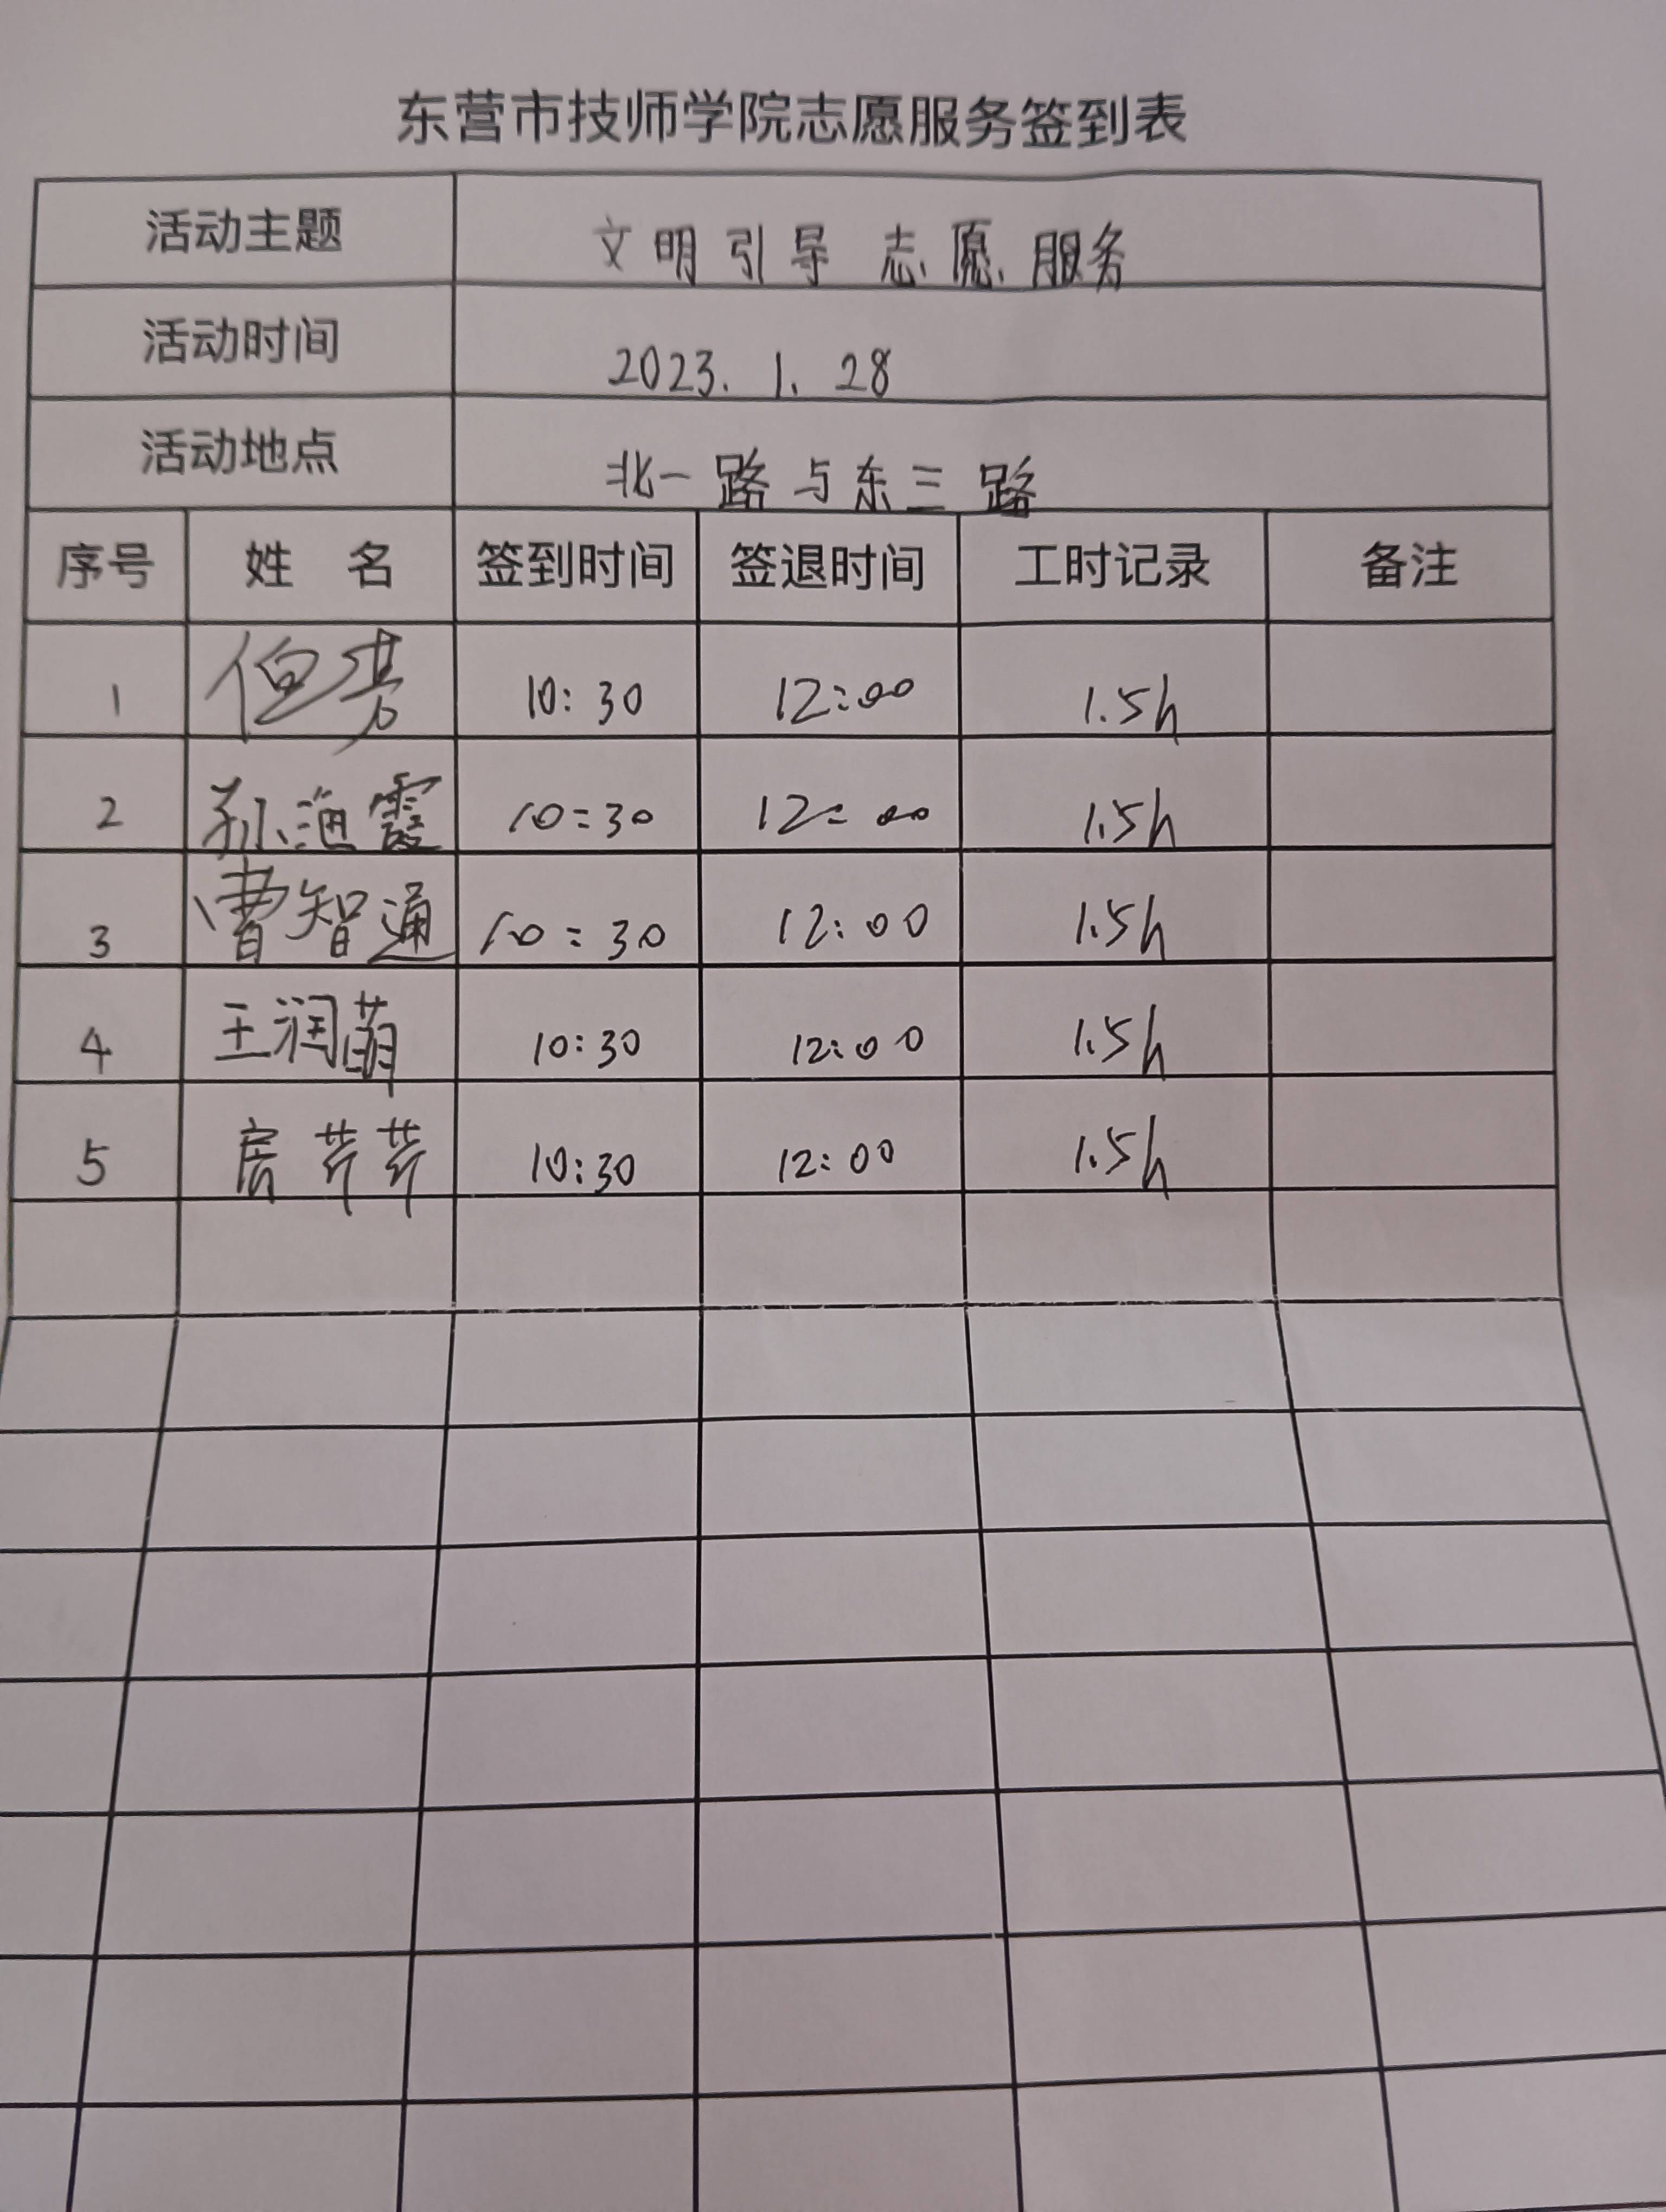 东营市技师学院志愿服务签到表
活动主题 文明引导志愿服务
活动时间 2023.1.28
活动地点 北一路与东三路
序号 姓名 签到时间 签退时间 工时记录 备注
1 10:30 12:00 1.5h
2 孙海霞 10:30 12:00 1.5h
3 曹智通 10:30 12:00 1.5h
4 王润萌 10:30 12:00 1.5h
5 房芹芹 10:30 12:00 1.5h